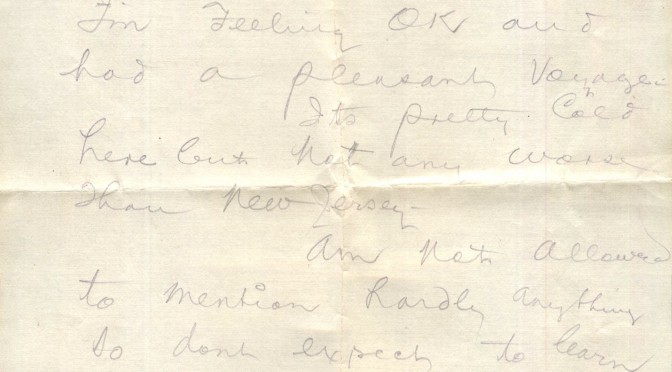 I'm Feeling OK and
had a pleasant Voyage.
Its pretty Cold
here but not any worse
than New Jersey-
Am not allowed
to mention hardly anything
so dont expect to learn